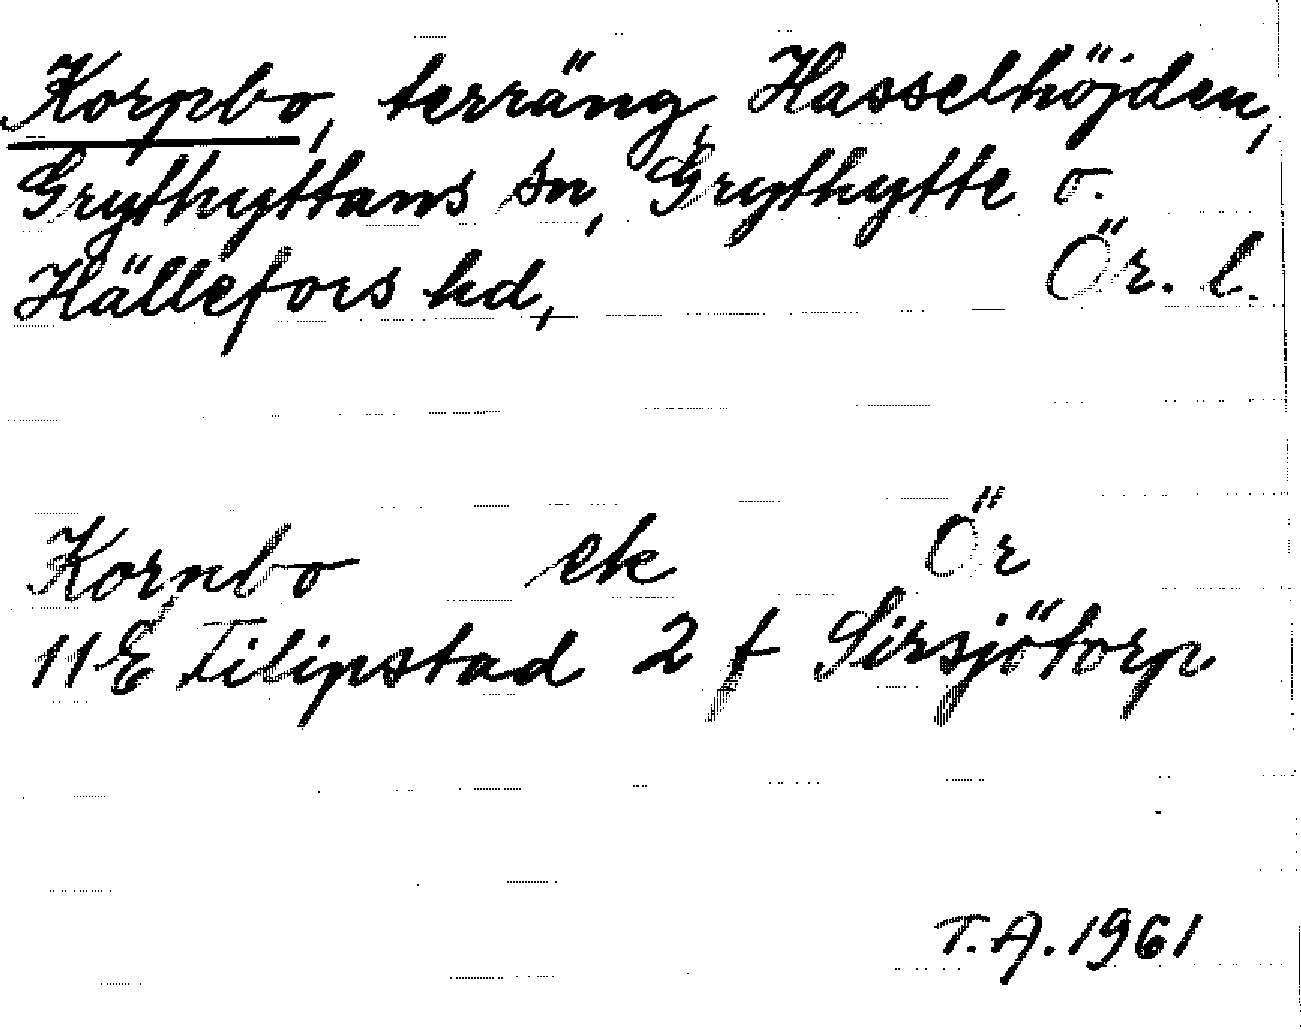 Kornbo, terräng, Hasselhöjden,
Grythyttans sn, Grythytte o.
Hällefors hd, Ör. l.
Kornbo ek Ör
11E Filipstad 2 f Sirsjötorp
T.A. 1961